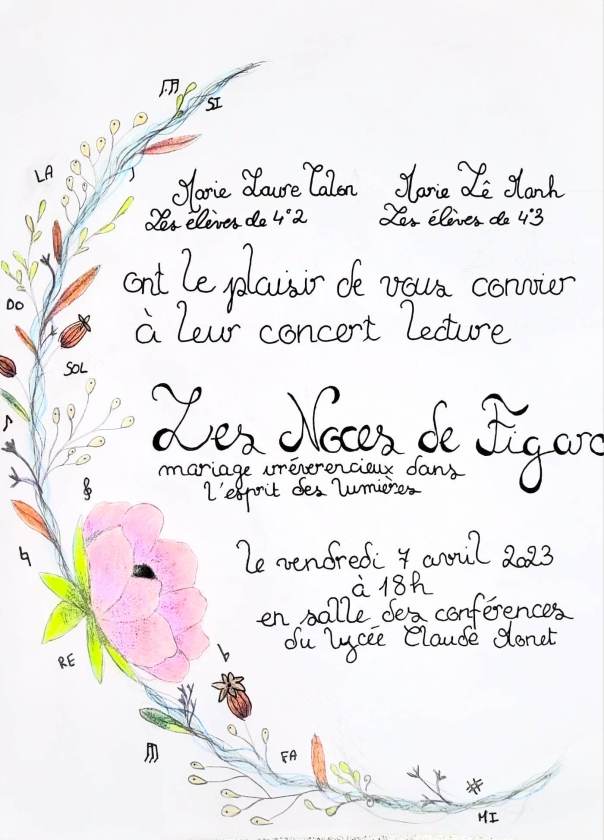 SI
LA
Marie Laure Talon
Les élèves de 4°2
Marie Lê Manh
Les élèves de 4°3
ont le plaisir de vous convier
à leur concert lecture
DO
SOL
Les Noces de Figaro
mariage irrévérencieux dans
l'esprit des lumières
le vendredi 7 avril 2023
à 18h
en salle des conférences
du lycée Claude Monet
RE
FA
MI